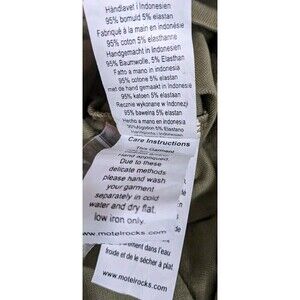 Håndlavet i Indonesien
95% bomuld 5% elastan
Fabriqué à la main en Indonésie
95% coton 5% elasthanne
Handgemacht in Indonesien
95% Baumwolle, 5% Elasthan
Fatto a mano in Indonesia
95% cotone 5% elastan
met de hand gemaakt in Indonesië
95% katoen 5% elastaan
Recznie wykonane w Indonezji
95% bawelna 5% elastan
Hecho a mano en Indonesia
95%algodón 5% Elastano
Care Instructions
This Garment
hand
Due to these
delicate methods
please hand wash
your garment
separately in cold
water and dry flat,
low iron only.
www.motelrocks.com
ément dans l'eau
froide et de le sécher à plat.
www.motelrocks.com